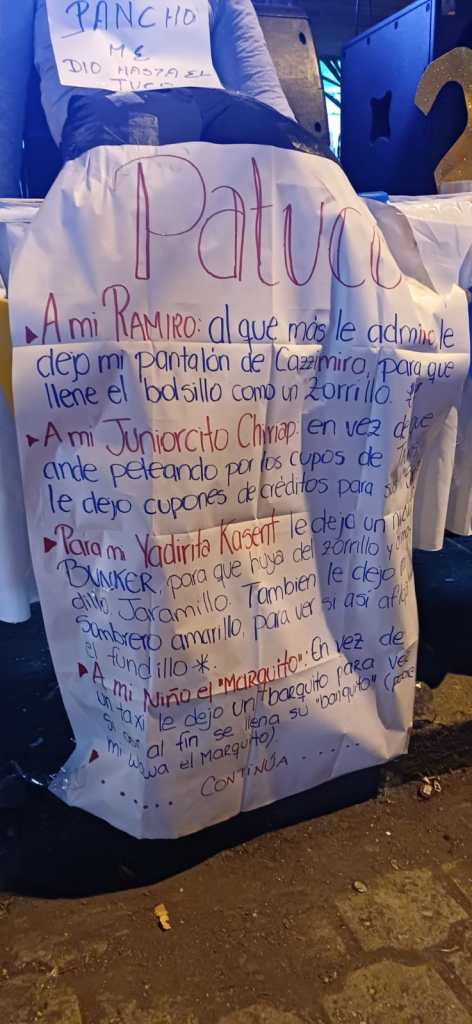 PANCHO
ME
DIO HASTA EL
Patuco
▸ A mi RAMIRO: al que más le admiro, le
dejo mi pantalón de Cazzimiro, para que
llene el bolsillo como un zorrillo.
▸ A mi Juniorcito Chiriap: en vez de que
ande peleando por los cupos de
le dejo cupones de créditos para
▸ Para mi Yadirita Kasent le dejo un
BUNKER, para que huya del zorrillo y
dillo Jaramillo. Tambien le dejo
Sombrero amarillo, para ver si así
el fundillo *.
▸ A mi Niño el "MARQUITO": En vez de
un taxi le dejo un "barquito para ver
si al fin se llena su "banquito"
mi wawa el MARQUITO)
▸ ...... CONTINÚA .....
2